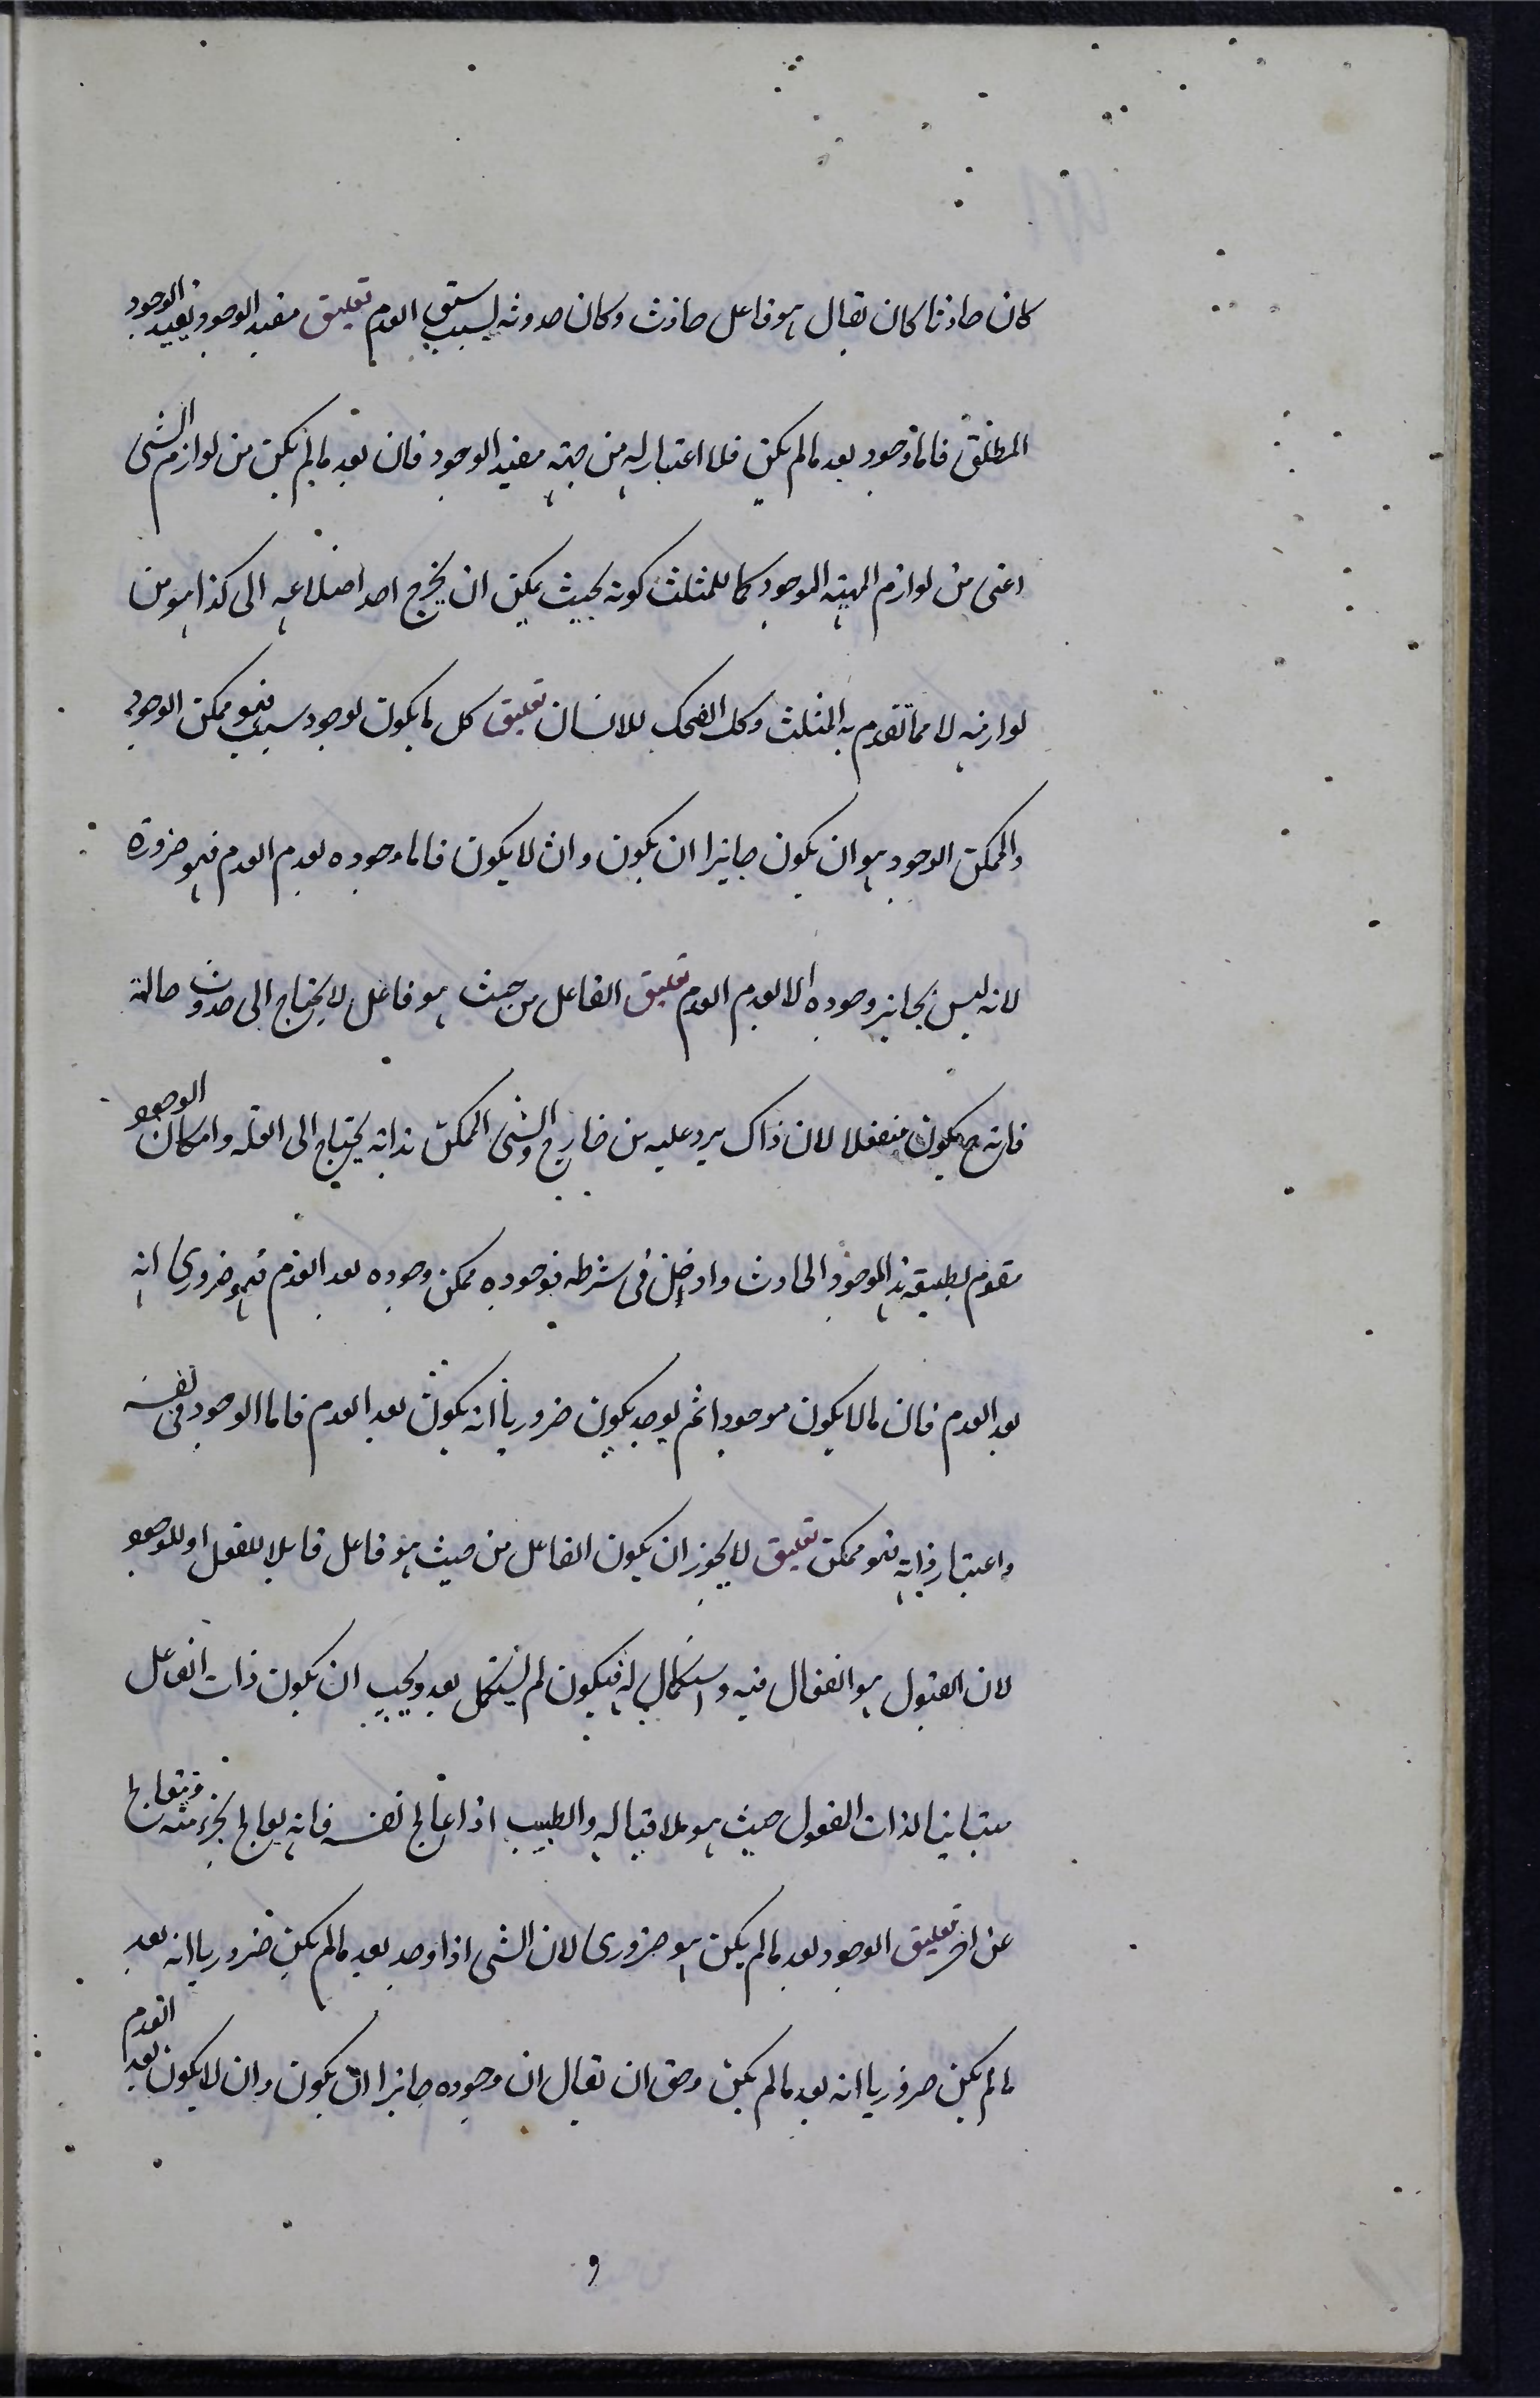 كان حادثا كان يقال هو فاعل حادث وكان حدوثه بسبب سبق العدم تعليق مفيد الوجود يفيد الوجود
المطلق فاما وجود بعد مالم يكن فلا اعتبار له من جهة مفيد الوجود فان بعد مالم يكن من لوازم الشئ
اعنى من لوازم المهية الموجود كما للمثلث كونه بحيث يمكن ان يخرج احد اضلاعه الى كذا هو من
لوازمه لا مما تقوم به المثلث وكك الضحك للانسان تعليق كل ما يكون لوجود سبب فهو ممكن الوجود
والممكن الوجود هو ان يكون جايزا ان يكون وان لا يكون فاما وجوده بعدم العدم فهو ضرورة
لانه ليس بجايز وجوده الا بعدم العدم تعليق الفاعل من حيث هو فاعل لا يحتاج الى حدوث حالة
فانه ح يكون منفعلا لان ذاك يرد عليه من خارج والشئ الممكن بذاته يحتاج الى العلة وامكان الوجود
مقوم لطبيعة هذا الموجود الحادث وداخل فى شرطه فوجوده ممكن وجوده بعد العدم فهو ضرورى انه
بعد العدم فان ما لا يكون موجودا ثم يوجد يكون ضروريا انه يكون بعد العدم فاما الوجود فى نفسه
واعتبار ذاته فهو ممكن تعليق لا يجوز ان يكون الفاعل من حيث هو فاعل قابلا للفعل او للوجود
لان القبول هو انفعال فيه واستكمال له فيكون لم يستكمل بعد ويجب ان يكون ذات الفاعل
متباينا لذات المفعول حيث هو ملاقيا له والطبيب اذا عالج نفسه فانه يعالج بجزء منه ويتعالج
عن اخر تعليق الوجود بعد مالم يكن هو ضرورى لان الشى اذا وجد بعد مالم يكن ضروريا انه بعد
مالم يكن ضروريا انه بعد مالم يكن وحق ان يقال ان وجوده جايزا ان يكون وان لا يكون بعد العدم
و